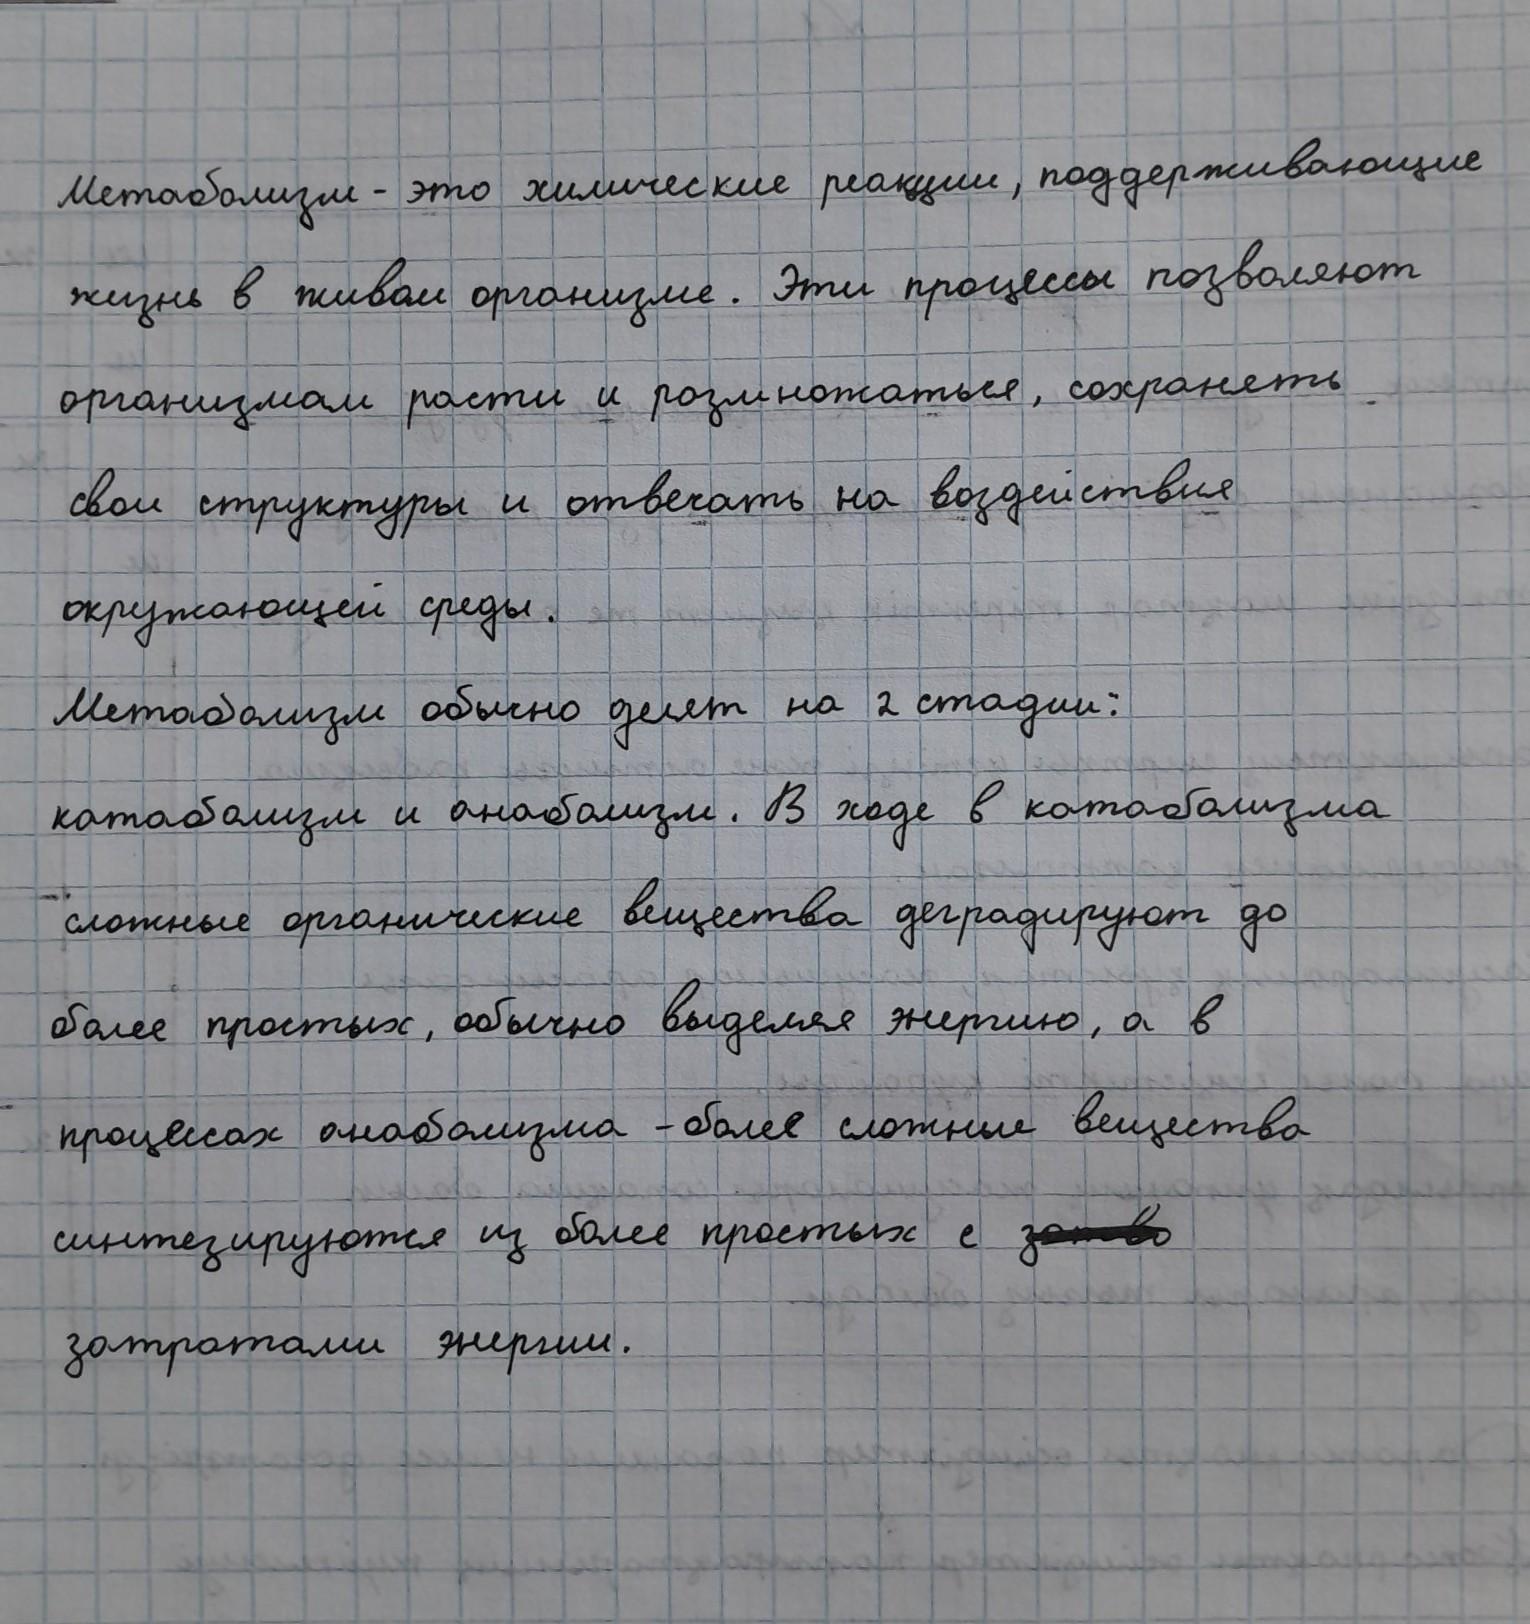 Метаболизм - это химические реакции, поддерживающие
жизнь в живом организме. Эти процессы позволяют
организмам расти и размножаться, сохранять
свои структуры и отвечать на воздействия
окружающей среды.
Метаболизм обычно делят на 2 стадии:
катаболизм и анаболизм. В ходе в катаболизма
сложные органические вещества деградируют до
более простых, обычно выделяя энергию, а в
процессах анаболизма - более сложные вещества
синтезируются из более простых с
затратами энергии.